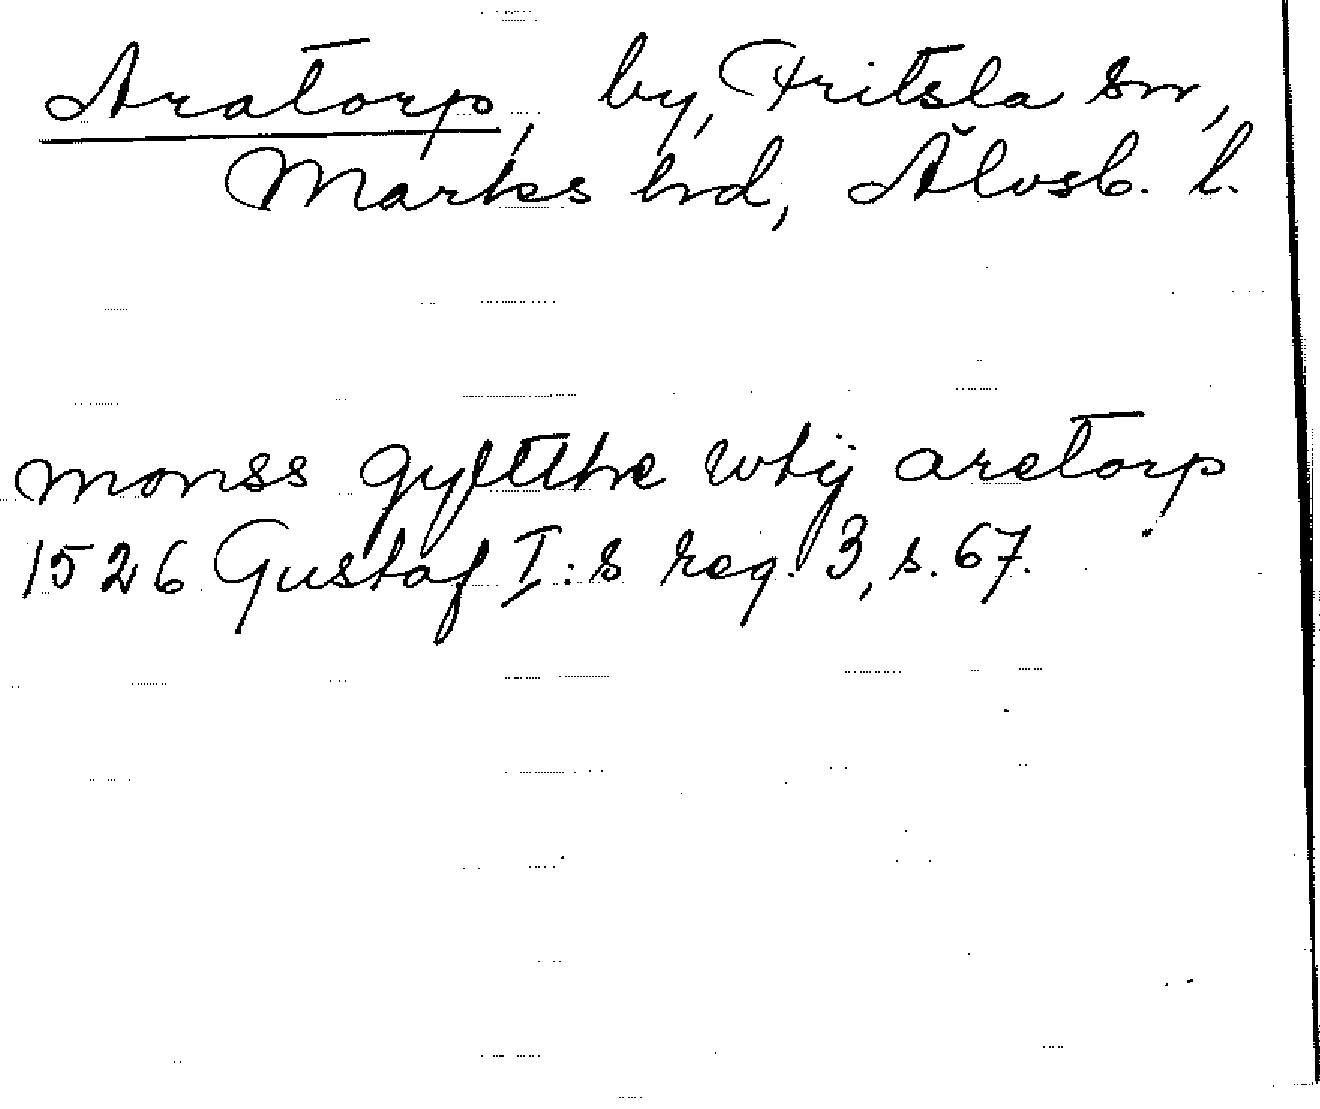 Aratorp, by, Fritsla sn,
Marks hd, Älvsb. l.
monss gyltthe vthij aretorp
1526 Gustaf I:s reg. 3, s. 67.